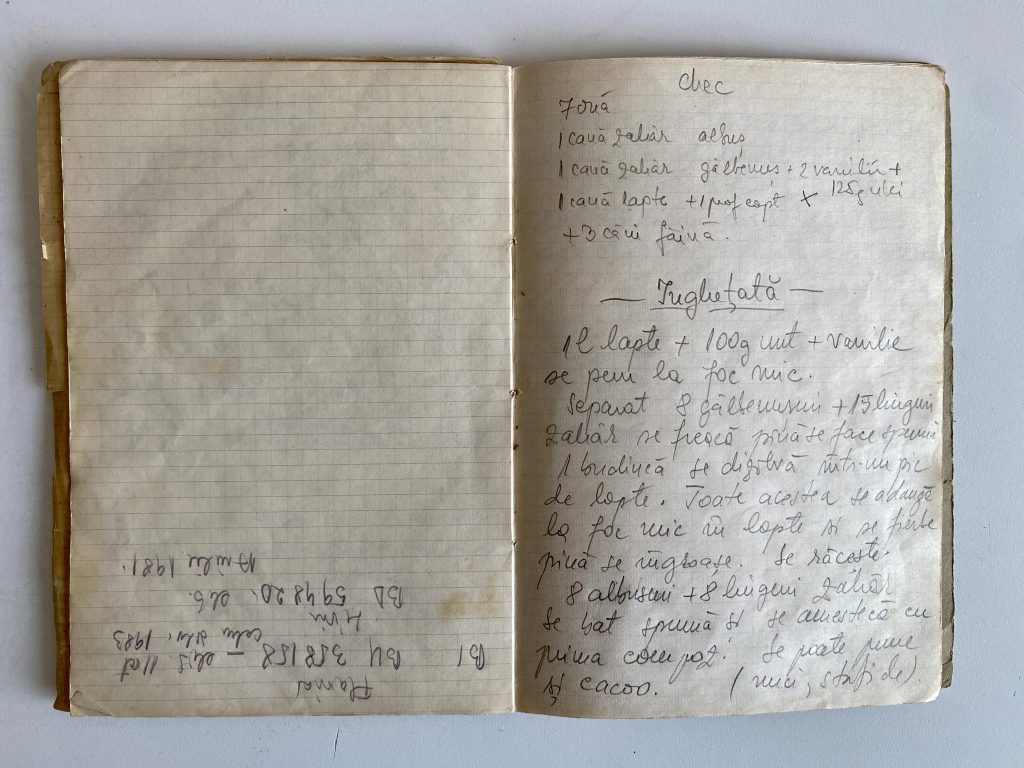 chec
7 ouă
1 cană zahăr albuș
1 cană zahăr gălbenuș + 2 vanilii +
1 cană lapte + 1 praf copt + 125g nuci
+ 3 căni făină.
— Înghețată —
1 l lapte + 100g unt + vanilie
se pun la foc mic.
Separat 8 gălbenușuri + 15 linguri
zahăr se freacă pînă se face spumă
1 budincă se dizolvă într-un pic
de lapte. Toate acestea se adaugă
la foc mic în lapte și se fierbe
pînă se îngroașe. Se răcește.
8 albușuri + 8 linguri zahăr
se bat spumă și se amestecă cu
prima compoz. Se poate pune
și cacao. (nuci, stafide).
BI BU 358158 elib
1983
BD 594820. elib.
1981.